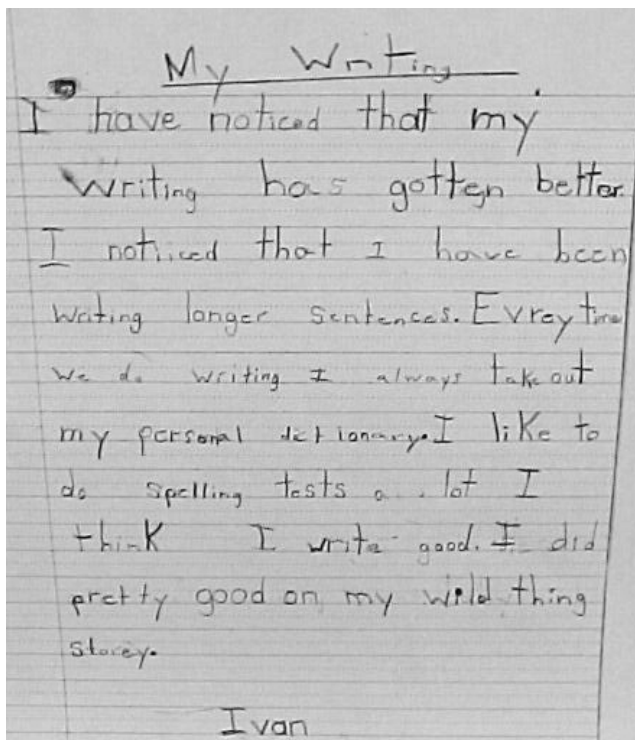 My Writing
I have noticed that my
Writing has gotten better.
I noticed that I have been
Writing longer sentences. Evrey time
we do writing I always take out
my personal dictionary. I like to
do spelling tests a lot I
think I write good. I did
pretty good on my wild thing
storey.
Ivan